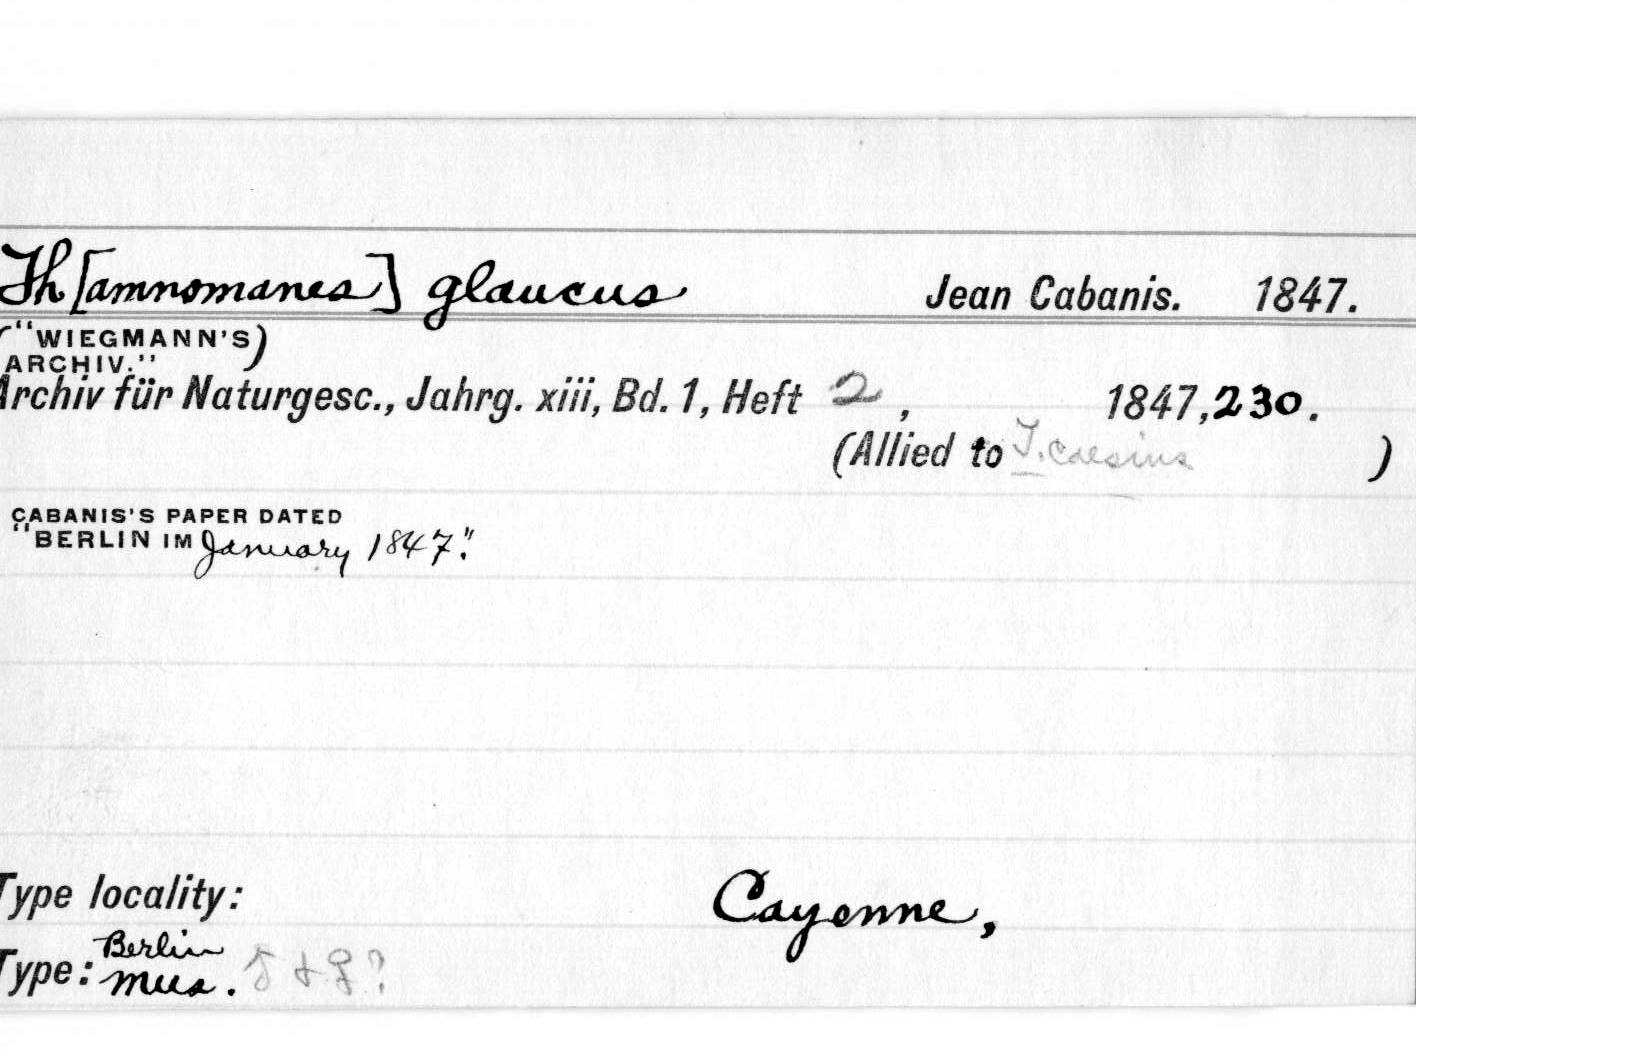 Th[amnomanes] glaucus Jean Cabanis. 1847.
("WIEGMANN'S)
ARCHIV."
Archiv für Naturgesc., Jahrg. xiii, Bd. 1, Heft 2, 1847, 230.
(Allied to T. caesius )
CABANIS'S PAPER DATED
"BERLIN IM January 1847."
Type locality: Cayenne,
Berlin
Type: Mus. ♂ + ♀?